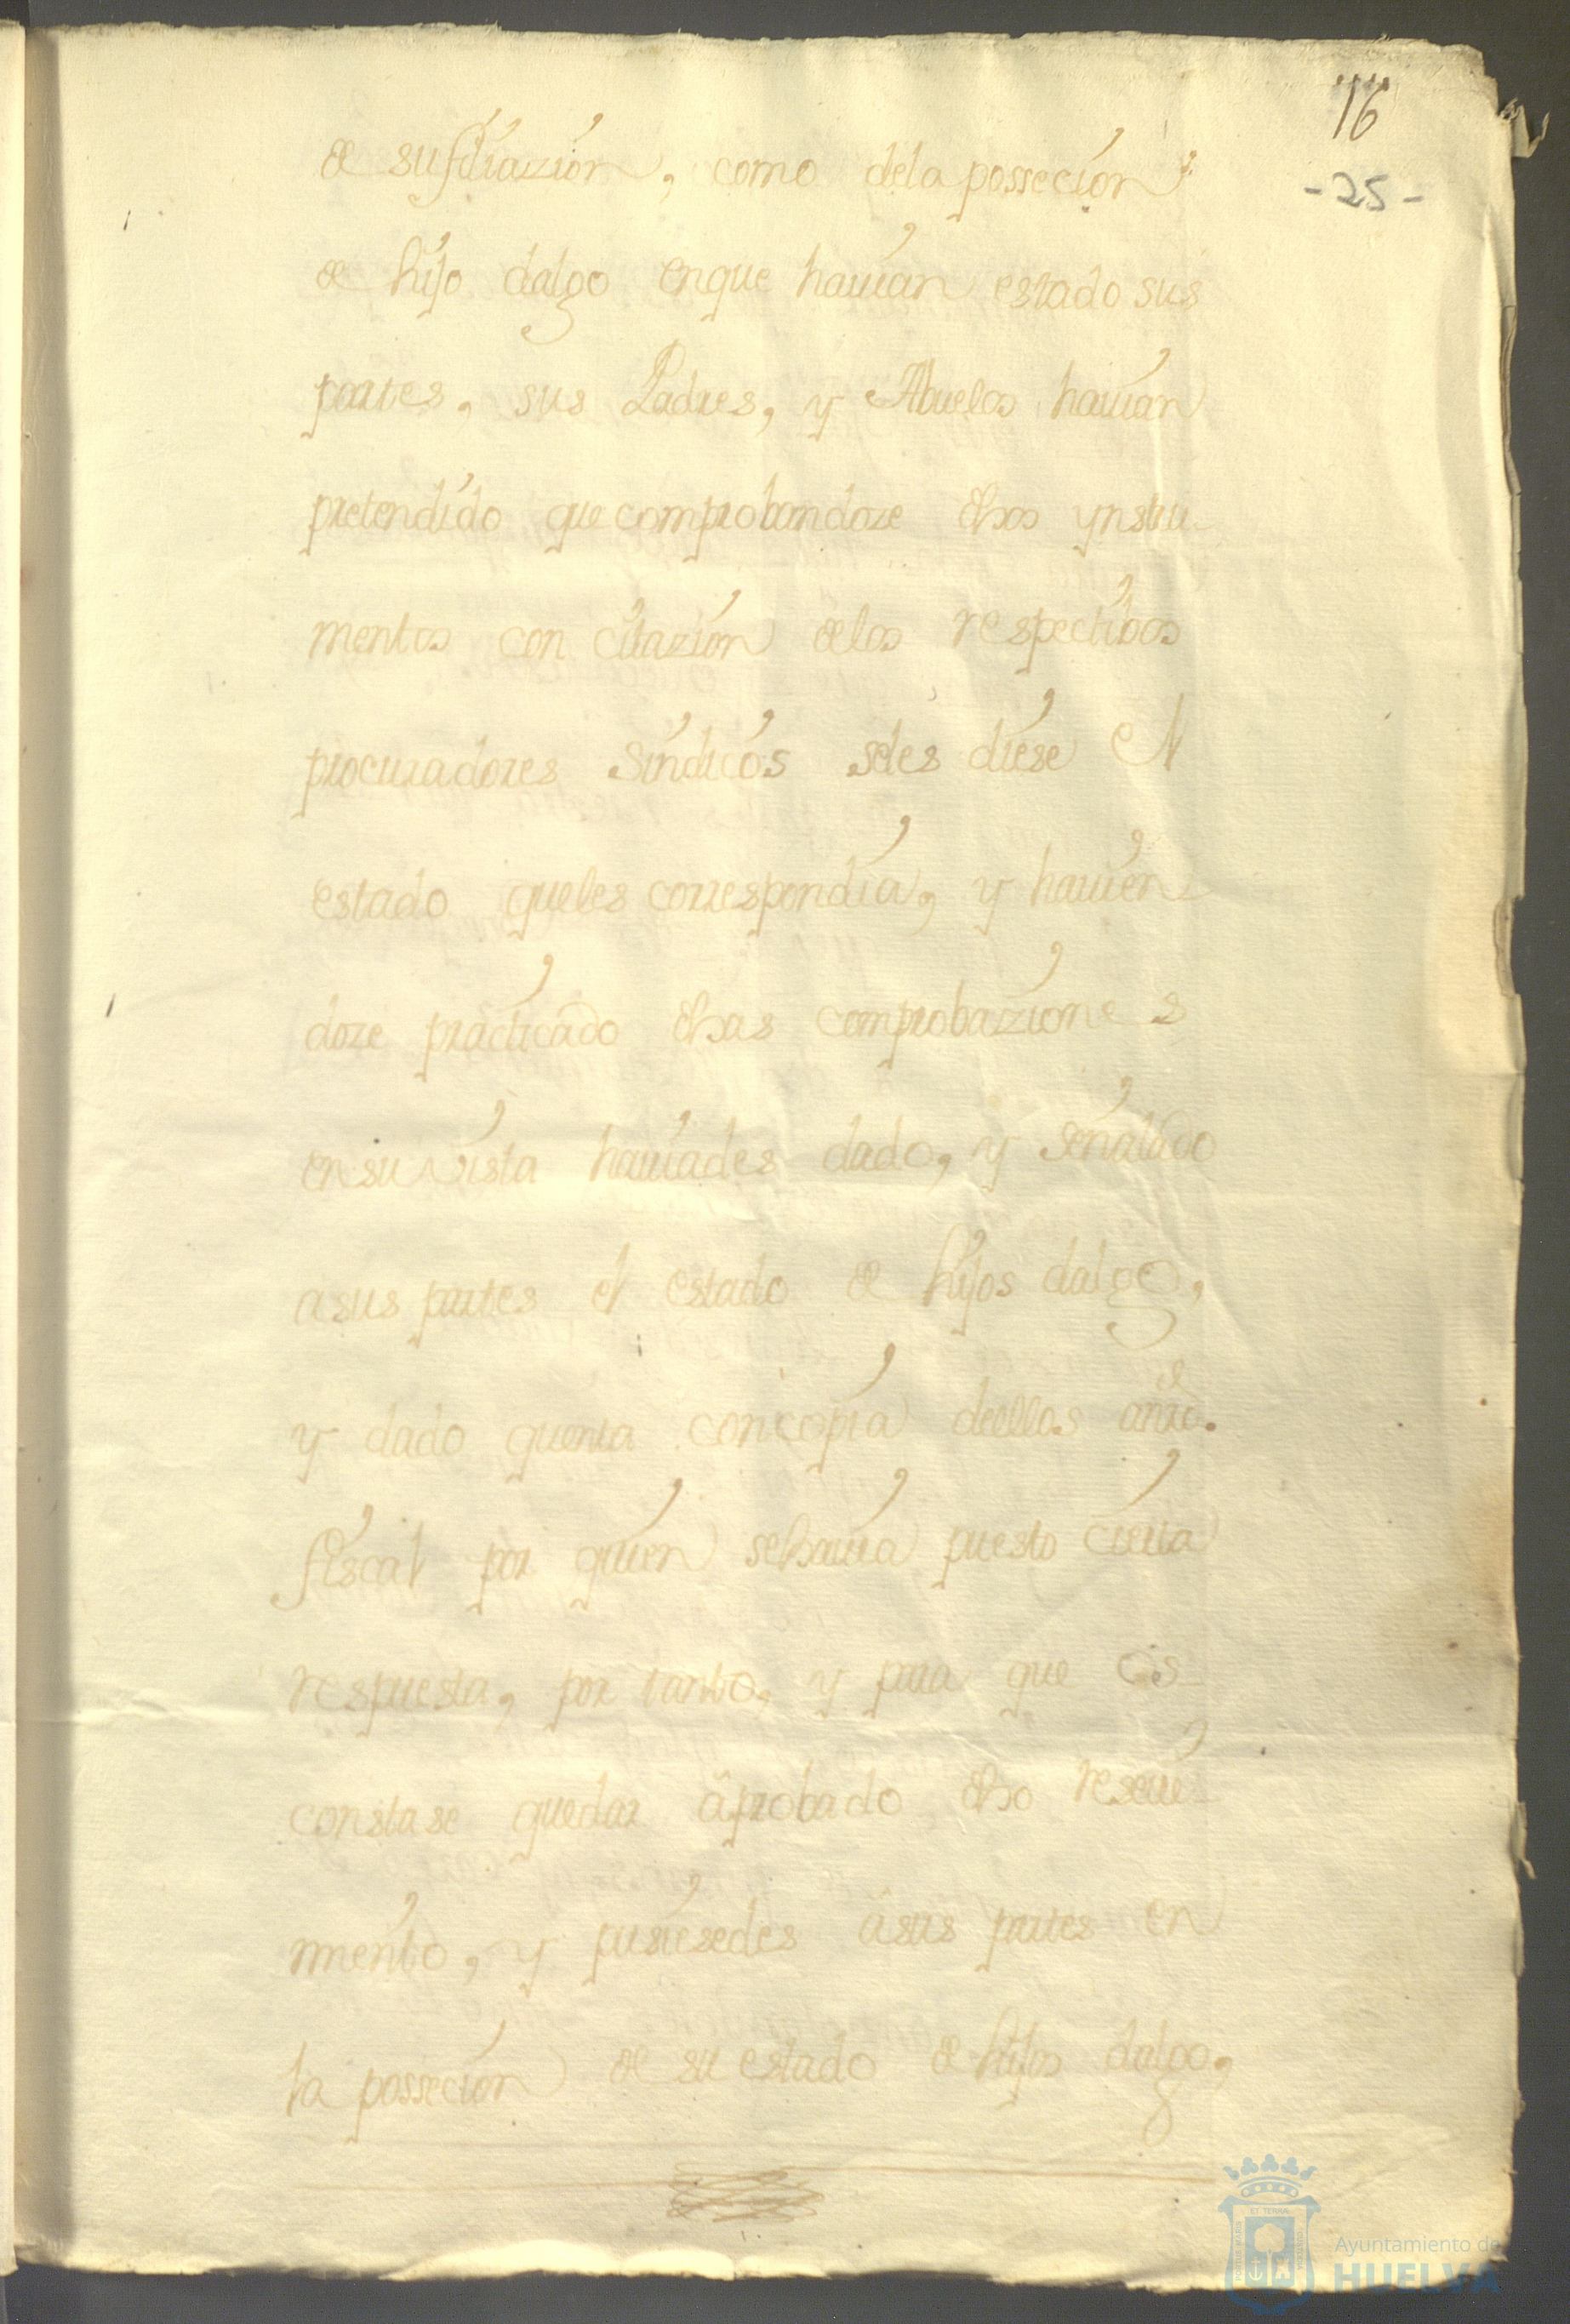 16
- 25 -
de su filiazion, como dela possecion
de hijo dalgo enque hauian estado sus
partes, sus Padres, y Abuelos hauian
pretendido que comprobandoze dhos ynstru-
mentos con citazion delos respectibos
procuradores Sindicos seles diese el
estado queles correspondia, y hauien-
doze practicado dhas comprobaziones
ensu vista hauiades dado, y señalado
asus partes el estado de hijos dalgo,
y dado quenta con copia deellos anro.
fiscal por quien sehauia puesto cierta
respuesta, por tanto, y para que os
constase quedar aprobado dho reseui-
miento, y pusiesedes asus partes en
la possecion de su estado de hijos dalgo,
Ayuntamiento de
HUELVA